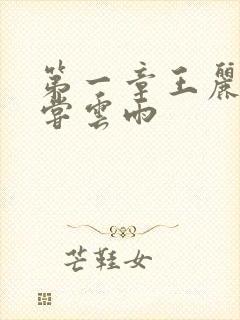 第一章王麗
嘗雲雨
芒鞋女